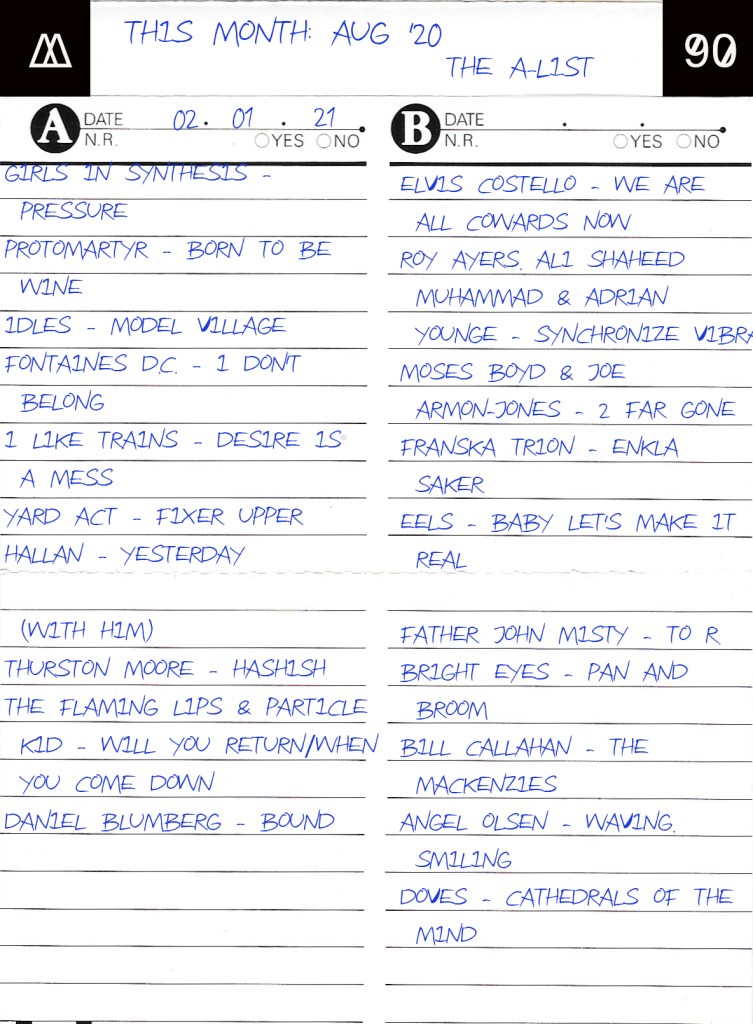 THIS MONTH: AUG '20
THE A-LIST
90
A DATE 02. 01 . 21
N.R. YES NO
GIRLS IN SYNTHESIS -
PRESSURE
PROTOMARTYR - BORN TO BE
WINE
IDLES - MODEL VILLAGE
FONTAINES D.C. - I DONT
BELONG
I LIKE TRAINS - DESIRE IS
A MESS
YARD ACT - FIXER UPPER
HALLAN - YESTERDAY
(WITH HIM)
THURSTON MOORE - HASHISH
THE FLAMING LIPS & PARTICLE
KID - WILL YOU RETURN/WHEN
YOU COME DOWN
DANIEL BLUMBERG - BOUND
B DATE . .
N.R. YES NO
ELVIS COSTELLO - WE ARE
ALL COWARDS NOW
ROY AYERS, ALI SHAHEED
MUHAMMAD & ADRIAN
YOUNGE - SYNCHRONIZE VIBRA
MOSES BOYD & JOE
ARMON-JONES - 2 FAR GONE
FRANSKA TRION - ENKLA
SAKER
EELS - BABY LET'S MAKE IT
REAL
FATHER JOHN MISTY - TO R
BRIGHT EYES - PAN AND
BROOM
BILL CALLAHAN - THE
MACKENZIES
ANGEL OLSEN - WAVING,
SMILING
DOVES - CATHEDRALS OF THE
MIND